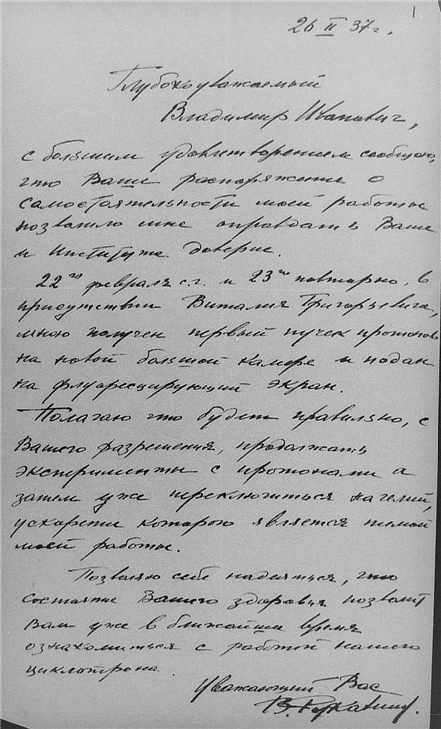 1
26 II 37 г.
Глубокоуважаемый
Владимир Иванович,
с большим удовлетворением сообщаю,
что Ваше распоряжение о
самостоятельности моей работы
позволило мне оправдать Ваше
и Института доверие.
22го февраля с.г. и 23го повторно, в
присутствии Виталия Григорьевича,
мною получен первый пучек протонов
на новой большой камере и подан
на флуоресцирующий экран.
Полагаю что будет правильно, с
Вашего разрешения, продолжать
эксперименты с протонами а
затем уже переключиться на гелий,
ускорение которого является темой
моей работы.
Позволяю себе надеяться, что
состояние Вашего здоровья позволит
Вам уже в ближайшее время
ознакомиться с работой нашего
циклотрона.
Уважающий Вас
В.